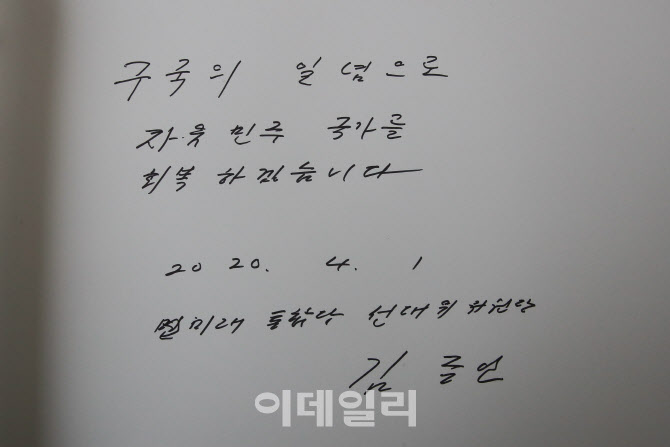 구국의 일념으로
자유 민주 국가를
회복 하겠습니다
2020. 4. 1
미래 통합당 선대위 위원장
김 종인
이데일리